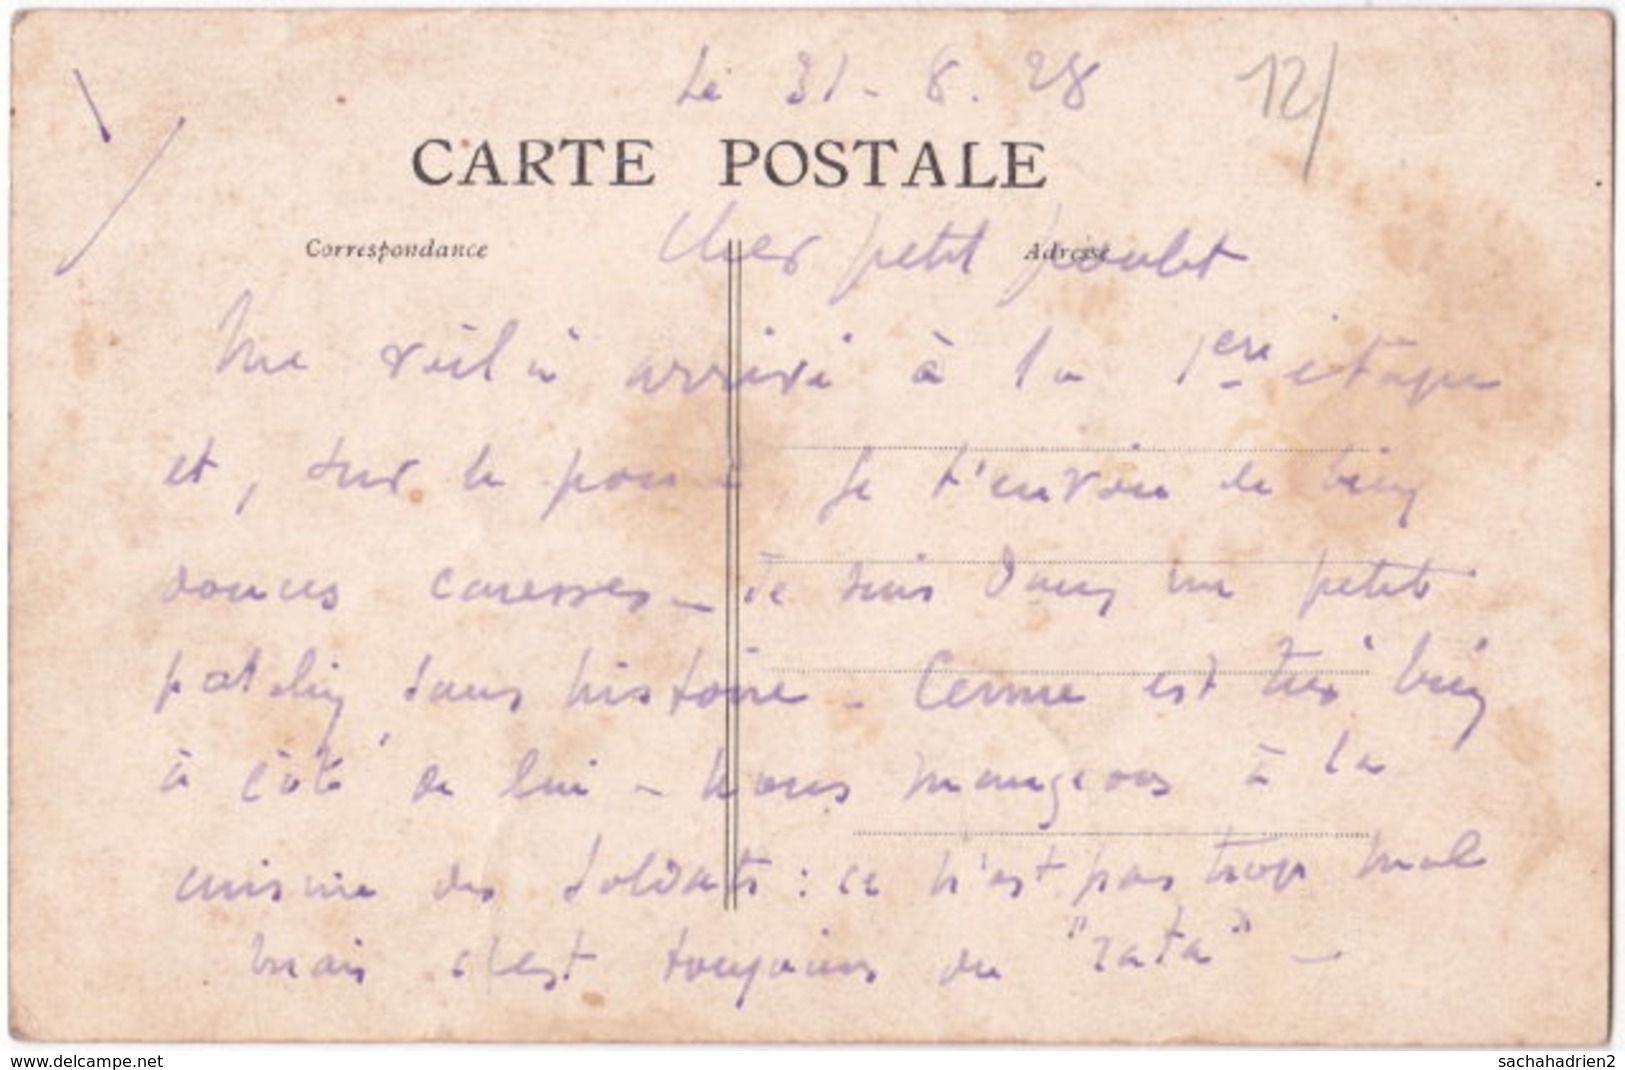 Le 31-8.28
12/
CARTE POSTALE
Correspondance
Adresse
Cher petit poulet
Me voilà arrivé à la 1ère étape
et, sur le pouce, je t'envoie de bien
douces caresses - Je suis dans un petit
patelin sans histoire - Cerme est très bien
à côté de lui - Nous mangeons à la
cuisine des soldats : ce n'est pas trop mal
mais c'est toujours du "rata" -
www.delcampe.net
sachahadrien2